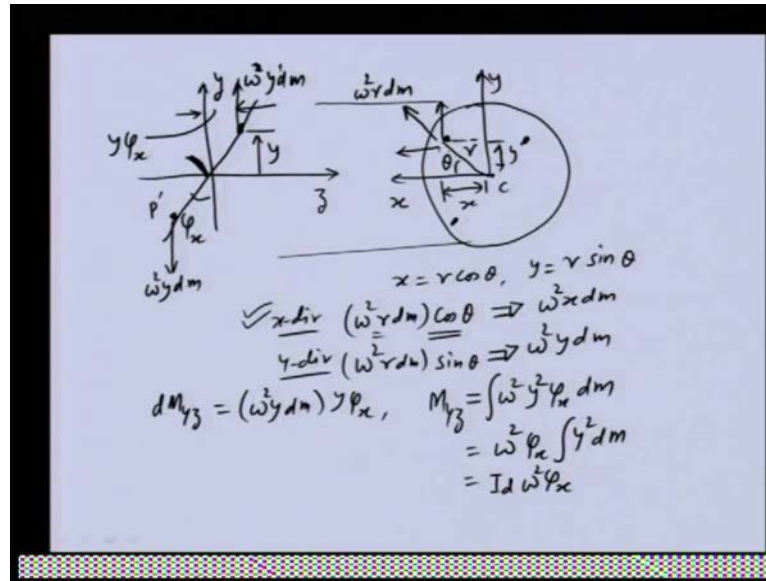 y
ω²y dm
ω²r dm
y
yφₓ
y
r
y
θ
z
x
x
c
p'
φₓ
ω²y dm
x = r cos θ, y = r sin θ
✓ x-dir (ω²r dm) cos θ ⇒ ω²x dm
y-dir (ω²r dm) sin θ ⇒ ω²y dm
dM_yz = (ω²y dm) yφₓ, M_yz = ∫ω² y² φₓ dm
= ω² φₓ ∫y² dm
= I_d ω² φₓ